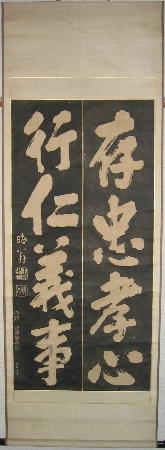 存忠孝心
行仁義事